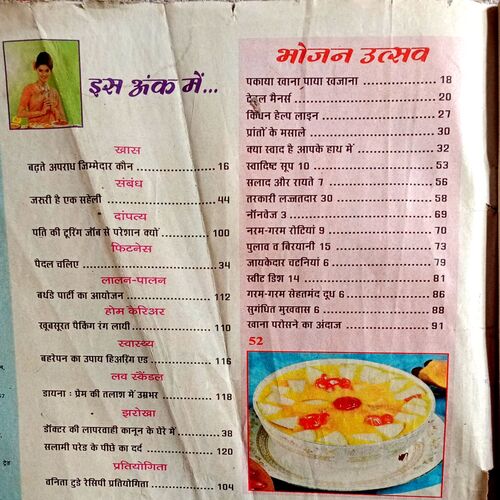 इस अंक में...
खास
बढ़ते अपराध जिम्मेदार कौन 16
संबंध
जरुरी है एक सहेली 44
दांपत्य
पति की टूरिंग जॉब से परेशान क्यों 100
फिटनेस
पैदल चलिए 34
लालन-पालन
बर्थडे पार्टी का आयोजन 112
होम कैरिअर
खूबसूरत पैकिंग रंग लायी 110
स्वास्थ्य
बहरेपन का उपाय हिअरिंग एड 116
लव स्कैंडल
डायना : प्रेम की तलाश में उम्रभर 118
झरोखा
डॉक्टर की लापरवाही कानून के घेरे में 38
सलामी परेड के पीछे का दर्द 120
प्रतियोगिता
वनिता टुडे रेसिपी प्रतियोगिता 104
भोजन उत्सव
पकाया खाना पाया खजाना 18
टेबुल मैनर्स 20
किचन हेल्प लाइन 27
प्रांतों के मसाले 30
क्या स्वाद है आपके हाथ में 32
स्वादिष्ट सूप 10 53
सलाद और रायते 7 56
तरकारी लज्जतदार 30 58
नॉनवेज 3 69
नरम-गरम रोटियां 9 70
पुलाव व बिरयानी 15 73
जायकेदार चटनियां 6 79
स्वीट डिश 14 81
गरम-गरम सेहतमंद दूध 6 86
सुगंधित मुखवास 6 88
खाना परोसने का अंदाज 91
52